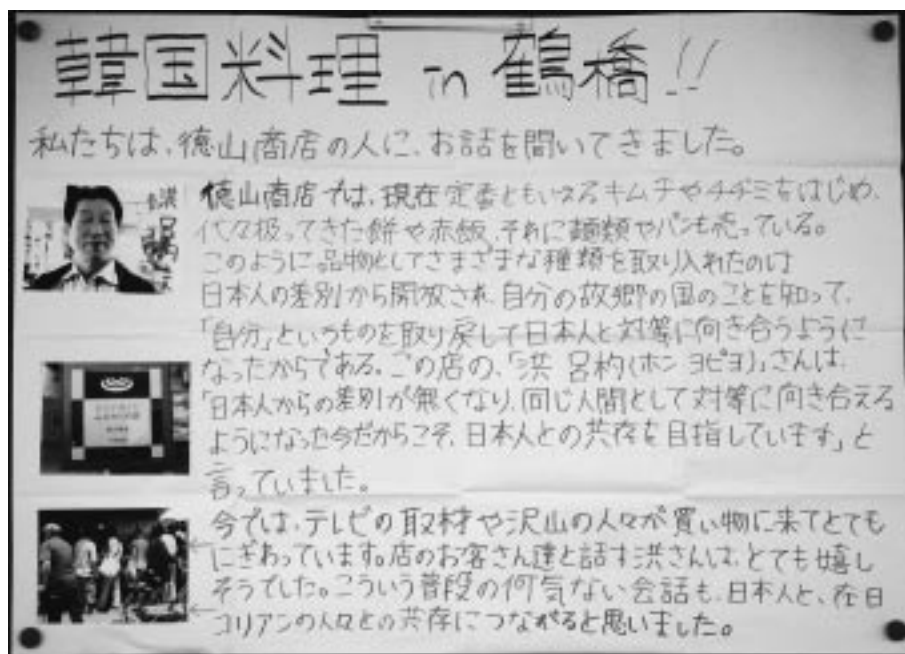 韓国料理 in 鶴橋!!
私たちは、徳山商店の人に、お話を聞いてきました。
徳山商店では、現在定番ともいえるキムチやチヂミをはじめ、
代々扱ってきた餅や赤飯、それに麺類やパンも売っている。
このように品物としてさまざまな種類を取り入れたのは
日本人の差別から開放され、自分の故郷の国のことを知って、
「自分」というものを取り戻して日本人と対等に向き合うように
なったからである。この店の、「洪 呂杓(ホン ヨピョ)」さんは、
「日本人からの差別が無くなり、同じ人間として対等に向き合える
ようになった今だからこそ、日本人との共存を目指しています」と
言っていました。
今では、テレビの取材や沢山の人々が買い物に来てとても
にぎわっています。店のお客さん達と話す洪さんは、とても嬉し
そうでした。こういう普段の何気ない会話も、日本人と、在日
コリアンの人々との共存につながると思いました。